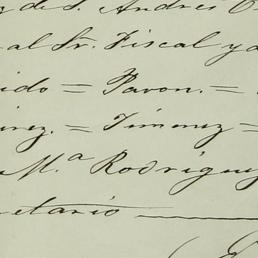 de S. Andres
al Sr. Fiscal y a
ido = Pavon. =
irez. = Jimenez =
M.ª Rodriguez
etario